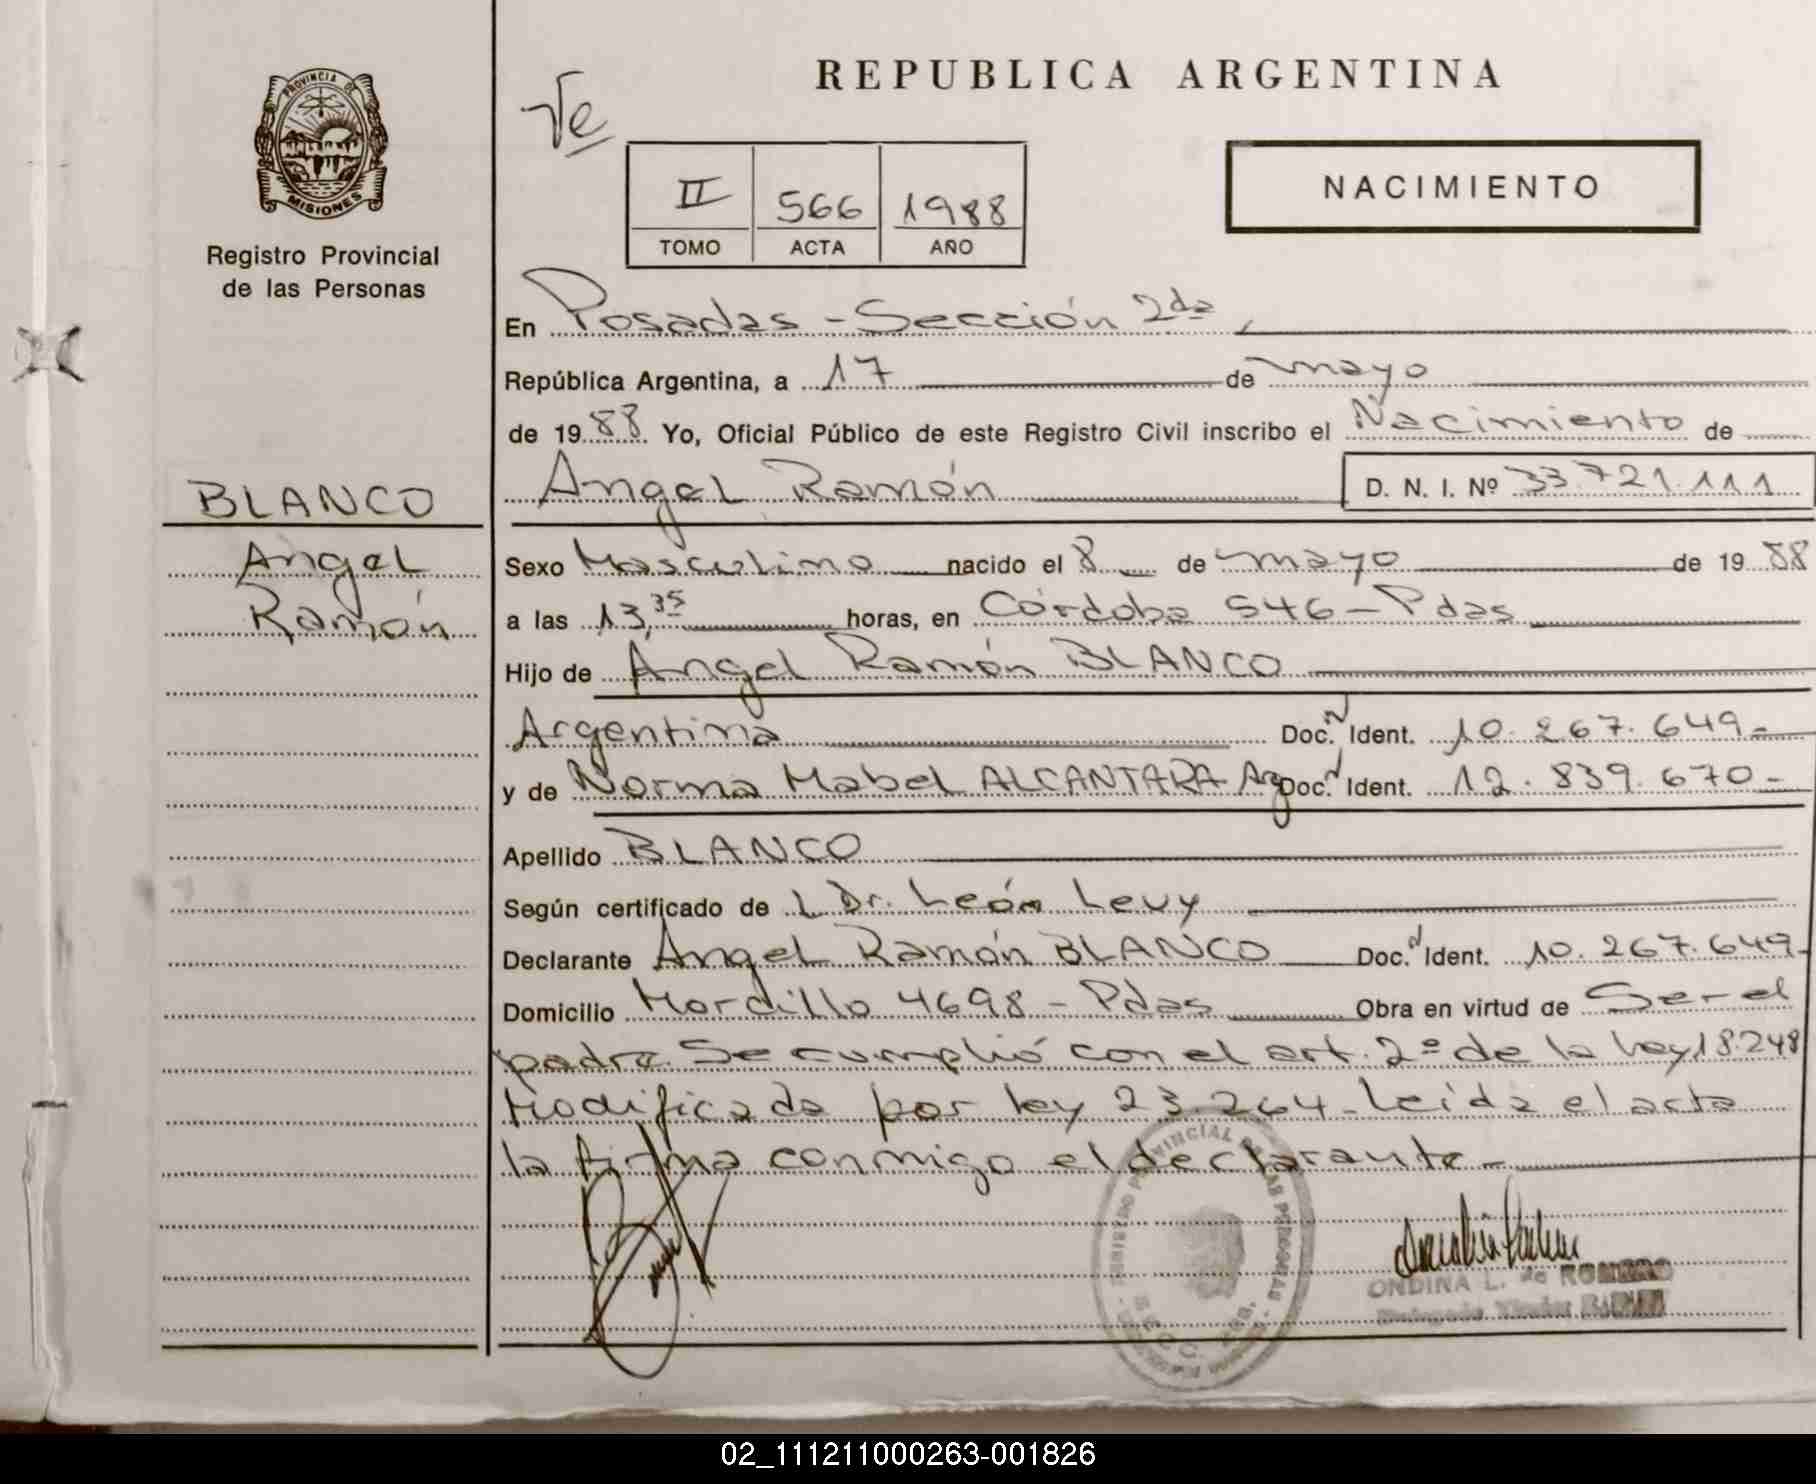 PROVINCIA DE
MISIONES
Registro Provincial
de las Personas
BLANCO
Angel
Ramón
REPUBLICA ARGENTINA
NACIMIENTO
II 566 1988
TOMO ACTA AÑO
En Posadas - Sección 2da,
República Argentina, a 17 de mayo
de 1988. Yo, Oficial Público de este Registro Civil inscribo el Nacimiento de
Angel Ramón D. N. I. Nº 33.721.111
Sexo Masculino nacido el 8 de mayo de 1988
a las 13,35 horas, en Córdoba 546 - Pdas
Hijo de Angel Ramón BLANCO
Argentina Doc. N Ident. 10.267.649-
y de Norma Mabel ALCANTARA Arg Doc. N Ident. 12.839.670-
Apellido BLANCO
Según certificado de L Dr. León Levy
Declarante Angel Ramón BLANCO Doc. N Ident. 10.267.649-
Domicilio Mordillo 4698 - Pdas Obra en virtud de Ser el
padre. Se cumplió con el art. 2º de la ley 18.248
Modificada por ley 23.264. Leida el acta
la firma conmigo el declarante.-
ONDINA L. de ROMERO
02_111211000263-001826